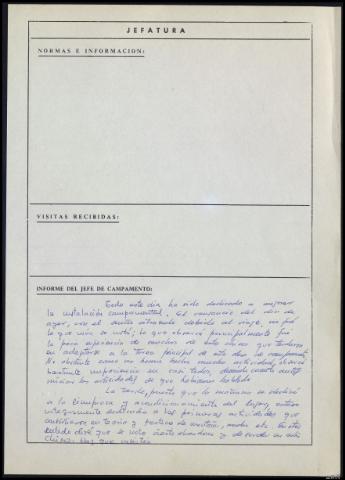 JEFATURA
NORMAS E INFORMACION:
VISITAS RECIBIDAS:
INFORME DEL JEFE DE CAMPAMENTO:
Todo este día ha sido dedicado a mejorar
la instalación campamental. El cansancio del día de
ayer, con el sueño atrasado debido al viaje, no fué
lo que más se notó; lo que observé principalmente fue
la poca experiencia de muchos de este
en adaptarse a la tarea principal de este día de campamento.
No obstante como se hacía mucha actividad, observé
bastante impaciencia en casi todos, deseando cuanto antes
iniciar las actividades de que habíamos hablado.
La tarde, puesto que la mañana se dedicó
a la limpieza y acondicionamiento del lugar, estuvo
integramente dedicada a las primeras actividades que
en teoría y
que se nota cierto abandono y desorden en